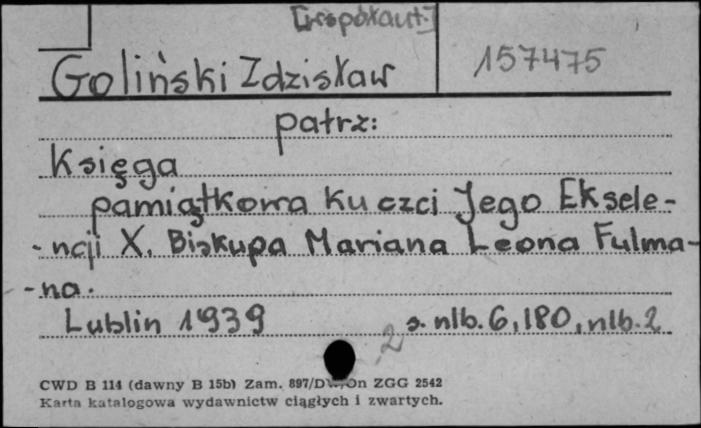 [współaut.]
Goliński Zdzisław
157475
patrz:
Księga
pamiątkowa ku czci Jego Eksele-
-ncji X. Biskupa Mariana Leona Fulma-
-na.
Lublin 1939 s. nlb. 6, 180, nlb. 2
2
CWD B 114 (dawny B 15b) Zam. 897/DW/On ZGG 2542
Karta katalogowa wydawnictw ciągłych i zwartych.